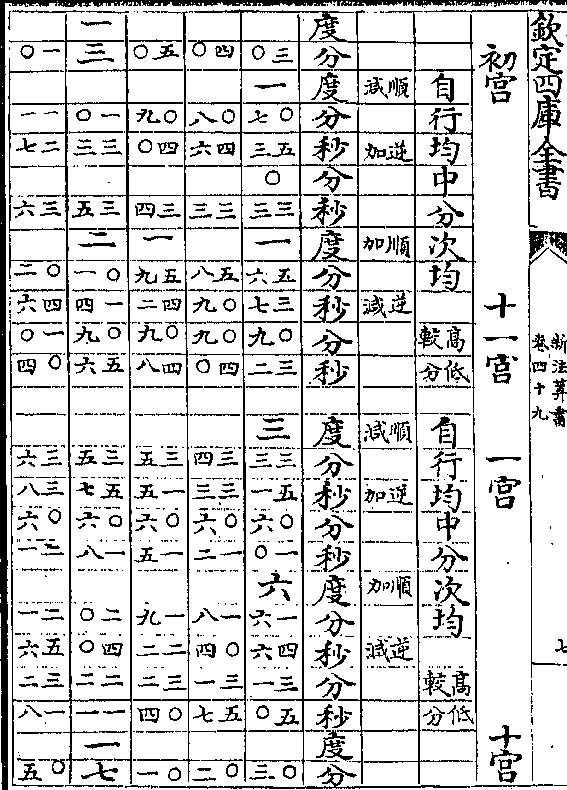 欽定四庫全書
新法算書
卷四十九
七
初宮 十一宮 一宮 十宮
自行均 中分 次均 高低較分 自行均 中分 次均 高低較分
順減 逆加 順加 逆減 順減 逆加 順加 逆減
度 分 度 分 秒 分 秒 度 分 秒 分 秒 度 分 秒 分 秒 度 分 秒 分 秒 度 分
三○ 一 ○七 五三 ○ 三三 一 五六 三七 ○九 三二 三 三三 五一 ○六 一○ 六 一六 四六 三一 五○ ○三
四○ ○八 四六 三三 五八 ○九 ○九 四○ 三四 三三 ○六 一二 一八 ○四 三一 五七 ○二
五○ ○九 四○ 三四 一 五九 四二 ○九 四八 三五 一五 ○六 一五 一九 二二 三二 ○四 ○一
一 三 一○ 三三 三五 二 ○一 一四 ○九 五六 三五 五七 ○六 一八 二○ 四○ 二二 一一 一 七
一○ 一一 二七 三六 ○二 四六 一○ ○四 三六 三八 ○六 二一 二一 五六 二三 一八 ○五